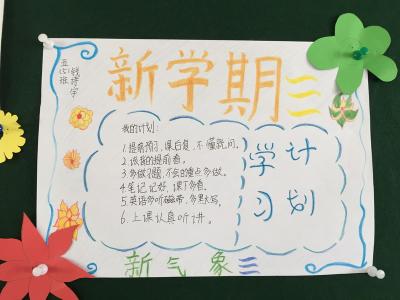 新学期
我的计划:
1.提前预习,课后复,不懂就问。
2.该背的提前背。
3.多做习题,不会的重点多做。
4.笔记记好,课下多看。
5.英语多听磁带,多默写。
6.上课认真听讲。
学计
习划
新气象